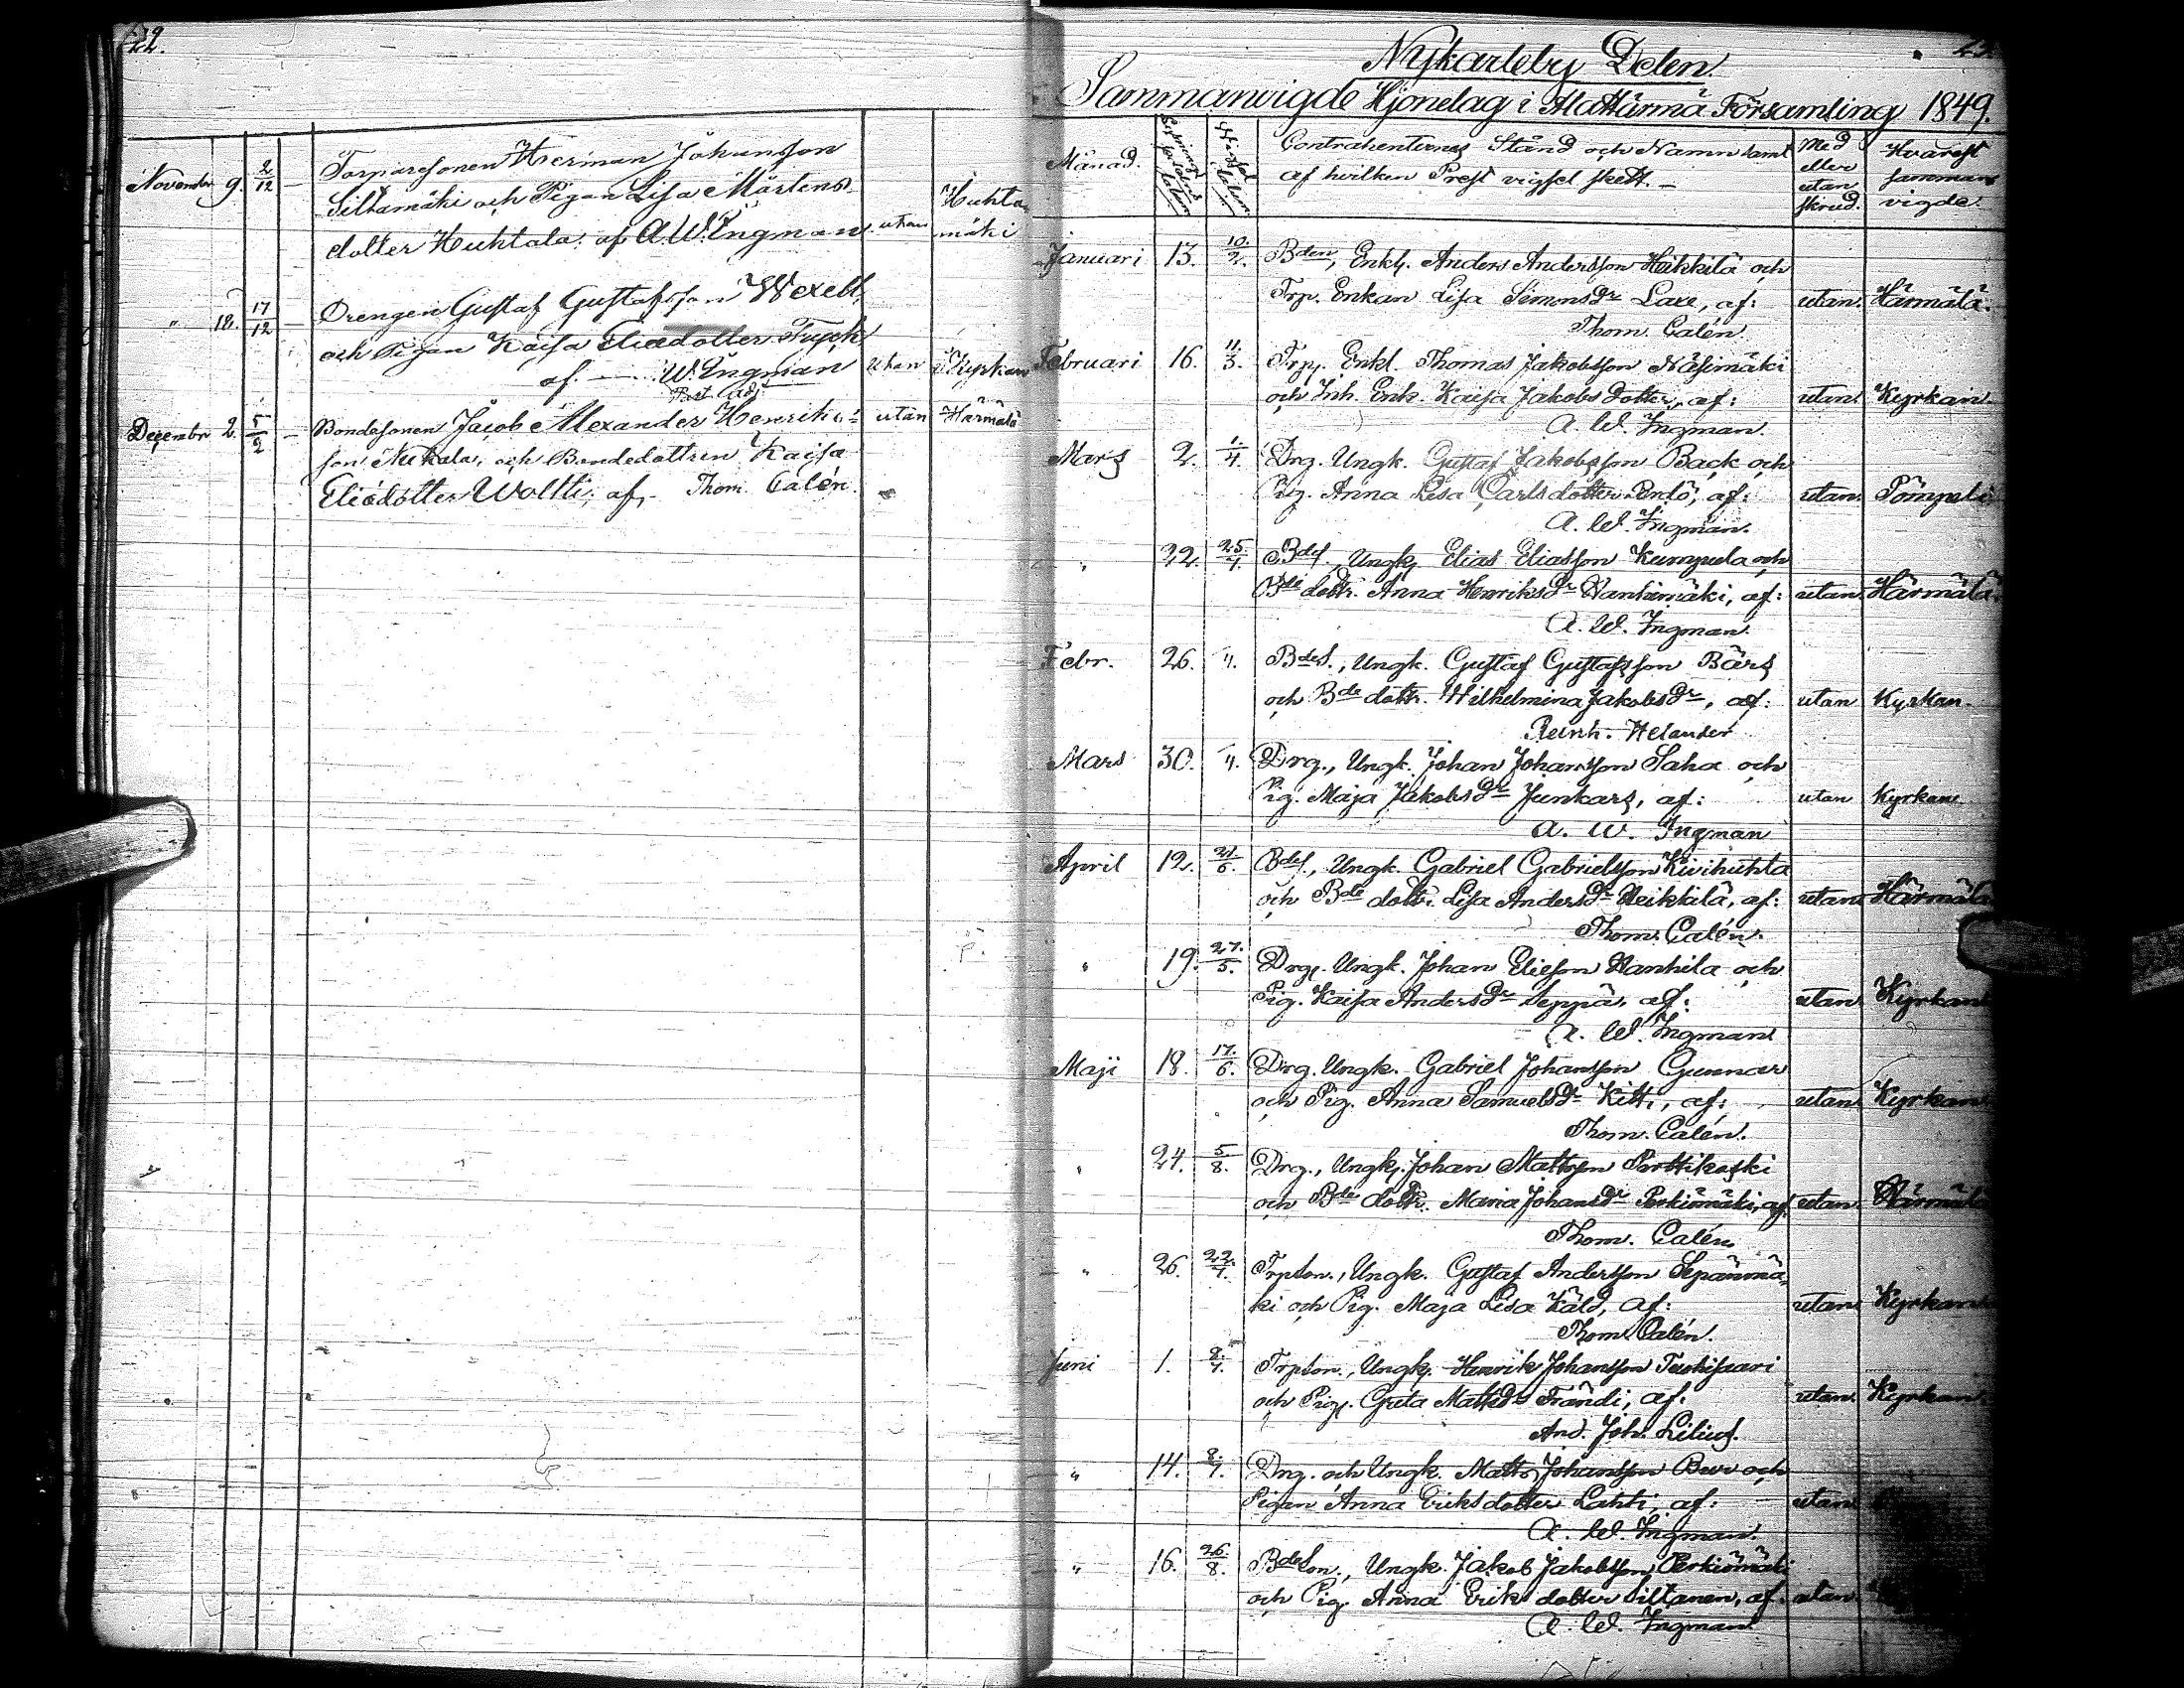 22.
Novembr 9. 2/12 — Torparesonen Herman Johansson
Siltamäki och Pigan Lisa Mårtens-
dotter Huhtala. af A W. Ingman utan Huhta
mäki
" 18. 17/12 — Drengen Gustaf Gustafsson Wexell,
och Pigan Kaisa Eliedotter Fryck
af. — W. Ingman utan i Kyrkan
Past. adj.
Decembr 2. 5/2 — Bondesonen Jacob Alexander Henriks= utan Härmälä
son Nukala, och Bondedottren Kaisa
Eliedotter Woltti, af, - Thom. Calén.
Nykarleby Delen.
Sammanvigde Hjonelag i Ala Härmä Församling 1849.
Månad. Contrahenternes Stånd och Namn samt af hvilken Prest vigsel skett. — Med eller utan skrud. Hvarest sammanvigde.
Januari 13. 10/2. Bden, Enkl. Anders Andersson Heikkilä och
Trp. Enkan Lisa Simonsdr Laxe, af: utan. Härmälä.
Thom. Calén.
Februari 16. 11/3. Trp. Enkl. Thomas Jakobsson Näsimäki
och Inh. Enk. Kaisa Jakobs dotter, af: utan. Kyrkan.
A. W. Ingman.
Mars 2. 1/4. Drg. Ungk. Gustaf Jakobsson Back och
Pig. Anna Lisa Carlsdotter, af: utan.
A. W. Ingman.
" 22. Bdes., Ungk. Elias Eliasson Kumpula och
Bde dottr. Anna Henriksdr Hanhimäki, af: utan. Härmälä.
A. W. Ingman.
Febr. 26. Bdes., Ungk. Gustaf Gustafsson Bärs
och Bde dottr. Wilhelmina Jakobsdr, af: utan Kyrkan.
Reinh. Helander
Mars 30. Drg., Ungk. Johan Johansson Saha och
Pig. Maja Jakobsdr Junkars, af: utan Kyrkan.
A. W. Ingman
April 12. Bdes., Ungk. Gabriel Gabrielsson Kivihuhta
och Bde dottr. Lisa Andersdr Heikkilä, af: utan Härmälä.
Thom. Calén.
" 19. 27/5. Drg. Ungk. Johan Eliesson Hanhila och
Pig. Kaisa Andersdr Seppä, af: utan Kyrkan
A. W. Ingman
Maji 18. 17/6. Drg. Ungk. Gabriel Johansson Gunnar
och Pig. Anna Samuelsdr Kitti, af: utan Kyrkan
Thom. Calén.
" 24. 5/8. Drg., Ungk. Johan Mattsson Porttikoski
och Bde dottr. Maria Johansdr Perkiömäki, af. utan. Härmälä
Thom. Calén.
" 26. 22/7. Trpson., Ungk. Gustaf Andersson Sepänmä-
ki och Pig. Maja Lisa Käld, af: utan. Kyrkan
Thom. Calén.
Juni 1. 8/7. Trpson., Ungk. Henrik Johansson Tuohisaari
och Pig. Greta Mattsdr Frändi, af: utan. Kyrkan.
And. Joh. Lilius.
" 14. 8/7. Drg. och Ungk. Matts Johansson och
Pigan Anna Eriksdotter Lahti, af: utan
A. W. Ingman.
" 16. 26/8. Bdeson., Ungk. Jakob Jakobsson Perkiömäki
och Pig. Anna Eriks dotter Siltanen, af. utan
A. W. Ingman